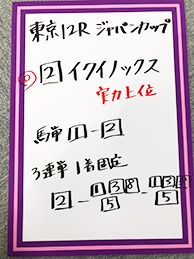 東京12R ジャパンカップ
◎ 2 イクイノックス
実力上位
馬単 1 - 2
3連単 1着固定
2 - 1 3 8 - 1 3 8
5 5